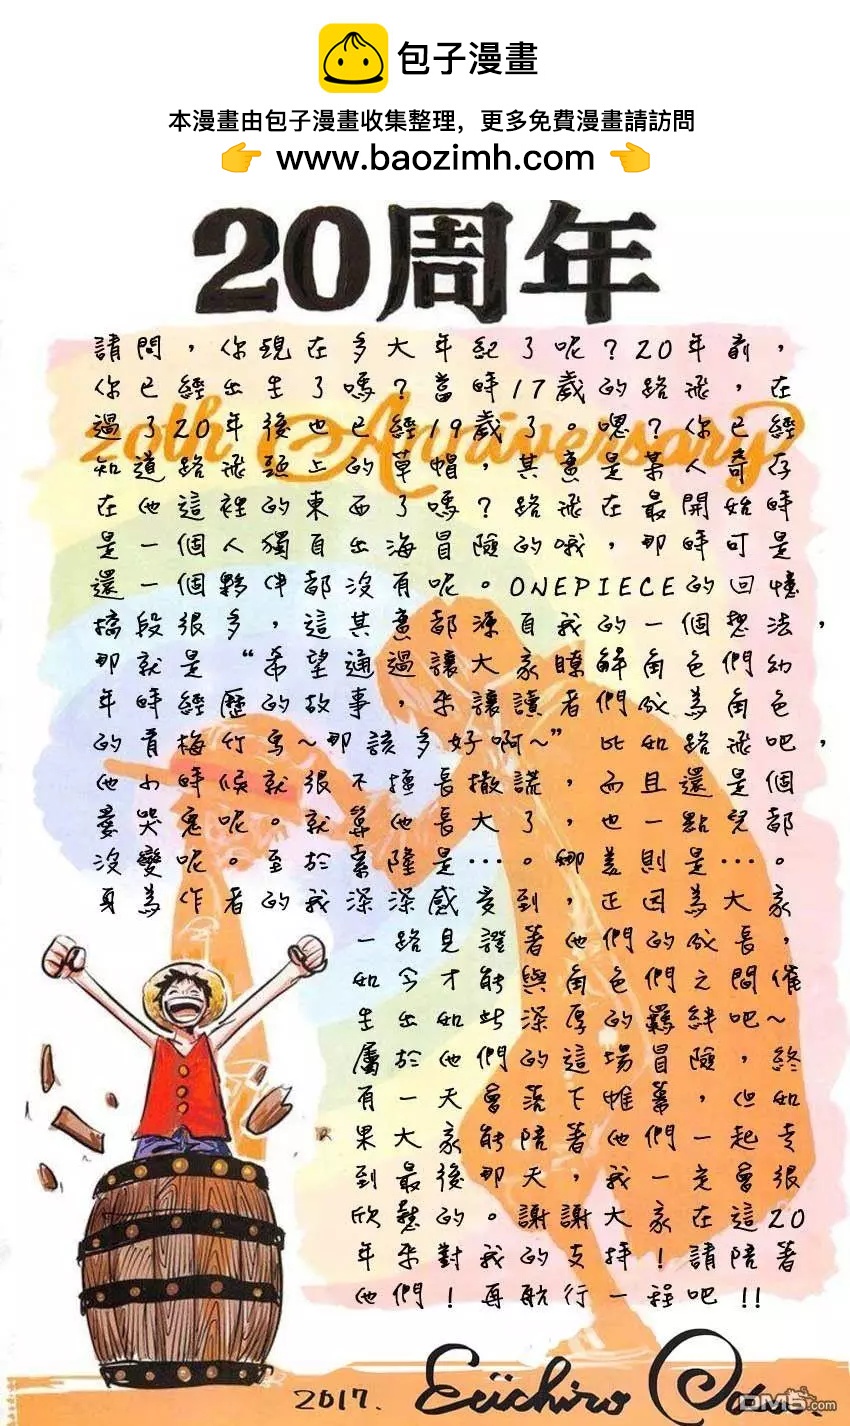 包子漫畫
本漫畫由包子漫畫收集整理，更多免費漫畫請訪問
👉 www.baozimh.com 👈
20周年
20th Anniversary
請問，你現在多大年紀了呢？20年前，
你已經出生了嗎？當時17歲的路飛，在
過了20年後也已經19歲了。嗯？你已經
知道路飛頭上的草帽，其實是某人寄存
在他這裡的東西了嗎？路飛在最開始時
是一個人獨自出海冒險的哦，那時可是
還一個夥伴都沒有呢。ONEPIECE的回憶
橋段很多，這其實都源自我的一個想法，
那就是“希望通過讓大家瞭解角色們幼
年時經歷的故事，來讓讀者們成為角色
的青梅竹馬~那該多好啊~” 比如路飛吧，
他小時候就很不擅長撒謊，而且還是個
愛哭鬼呢。就算他長大了，也一點兒都
沒變呢。至於索隆是…。娜美則是…。
身為作者的我深深感受到，正因為大家
一路見證著他們的成長，
如今才能與角色們之間催
生出如此深厚的羈絆吧~
屬於他們的這場冒險，終
有一天會落下帷幕，但如
果大家能陪著他們一起走
到最後那天，我一定會很
欣慰的。謝謝大家在這20
年來對我的支持！請陪著
他們！再航行一程吧!!
2017. Eiichiro Oda.
DM5.com